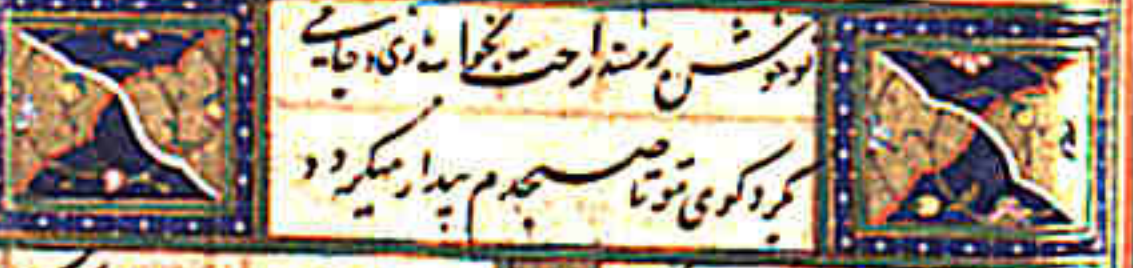 تو خوش بر مسند راحت بخواب نازی و جامی
بگرد کوی تو تا صبحدم بیدار میگردد